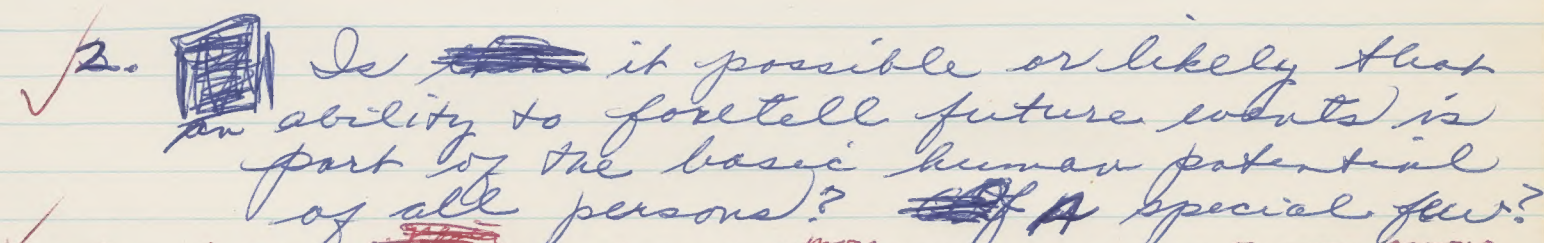 2. Is it possible or likely that
an ability to foretell future events is
part of the basic human potential
of all persons? A special few?